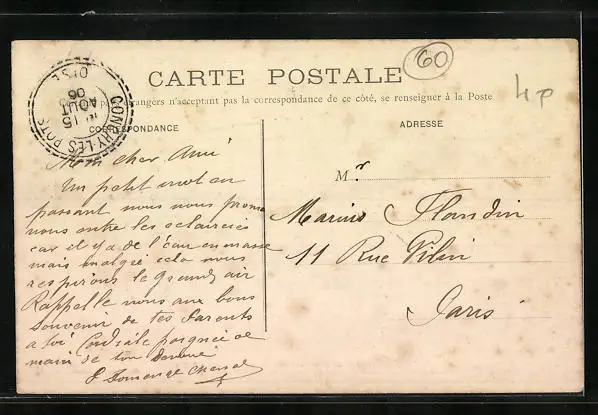 60
CARTE POSTALE
4p
pays étrangers n'acceptant pas la correspondance de ce côté, se renseigner à la Poste
CONCHY-LES-POTS
15
AOUT
06
OISE
CORRESPONDANCE
ADRESSE
Mon cher Ami
Un petit mot en
passant nous nous prome
nous entre les eclaircies
car il y a de l'eau en masse
mais malgré cela nous
respirons le grand air
Rappelle nous aux bons
Souvenir de tes Parents
a toi Cordiale poignée de
main de ton
M r
Marius Flandin
11 Rue
Paris